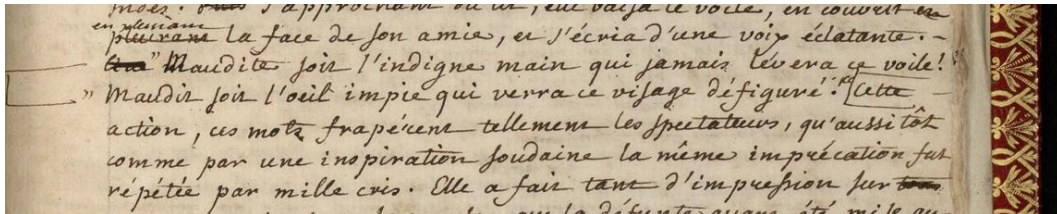 s'approchant du lit, elle baisa le voile, en couvrit en
en pleurant
pleurant la face de son amie, et s'écria d'une voix éclatante. -
" Maudite soit l'indigne main qui jamais lévera ce voile!
" Maudit soit l'oeil impie qui verra ce visage défiguré! Cette
action, ces mots frapérent tellement les spectateurs, qu'aussi tôt
comme par une inspiration soudaine la même imprécation fut
répétée par mille cris. Elle a fait tant d'impression sur tous
la défunte ayant été mise au